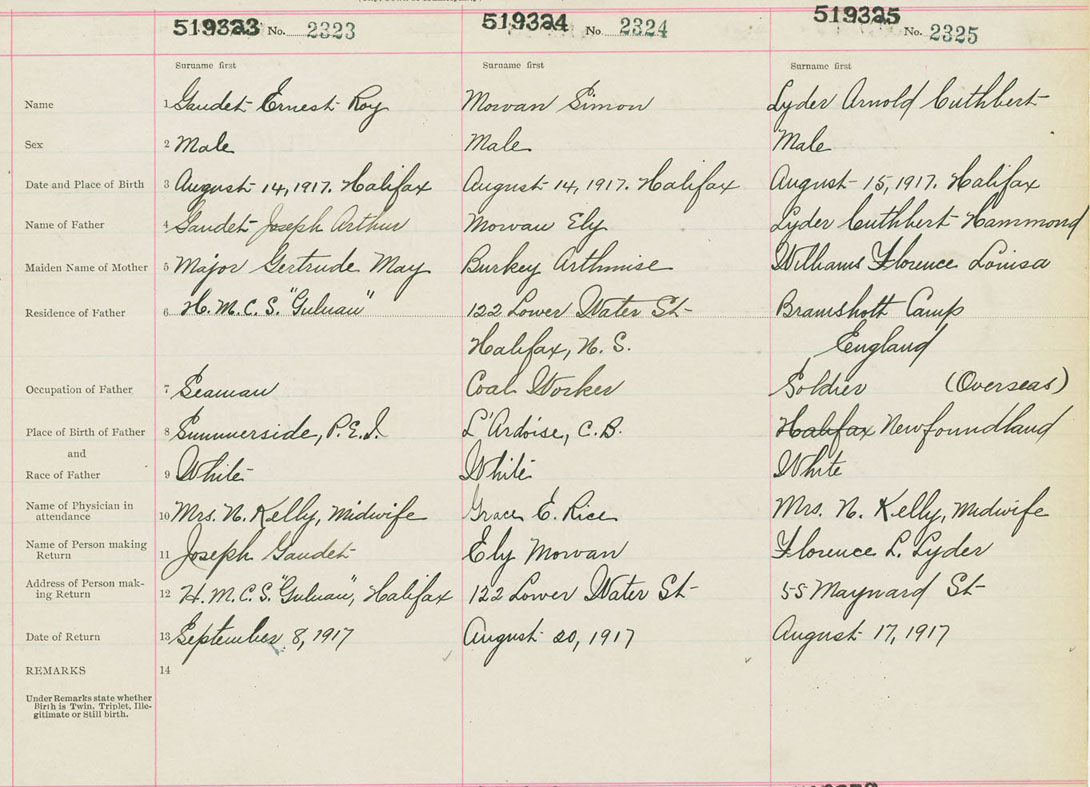 519323 No. 2323 519324 No. 2324 519325 No. 2325
Surname first Surname first Surname first
Name 1 Gaudet Ernest Roy Mowan Simon Lyder Arnold Cuthbert
Sex 2 Male Male Male
Date and Place of Birth 3 August 14, 1917. Halifax August 14, 1917. Halifax August 15, 1917. Halifax
Name of Father 4 Gaudet Joseph Arthur Mowan Ely Lyder Cuthbert Hammond
Maiden Name of Mother 5 Major Gertrude May Burkey Arthmise Williams Florence Louisa
Residence of Father 6 H.M.C.S. "Guluau" 122 Lower Water St Bramshott Camp
Halifax, N.S. England
Occupation of Father 7 Seaman Coal Worker Soldier (Overseas)
Place of Birth of Father 8 Summerside, P.E.I. L'Ardoise, C.B. Halifax Newfoundland
and
Race of Father 9 White White White
Name of Physician in
attendance 10 Mrs. N. Kelly, Midwife Grace E. Rice Mrs. N. Kelly, Midwife
Name of Person making
Return 11 Joseph Gaudet Ely Mowan Florence L. Lyder
Address of Person mak-
ing Return 12 H.M.C.S. "Guluau", Halifax 122 Lower Water St 55 Maynard St
Date of Return 13 September 8, 1917 August 20, 1917 August 17, 1917
REMARKS 14
Under Remarks state whether
Birth is Twin, Triplet, Ille-
gitimate or Still birth.